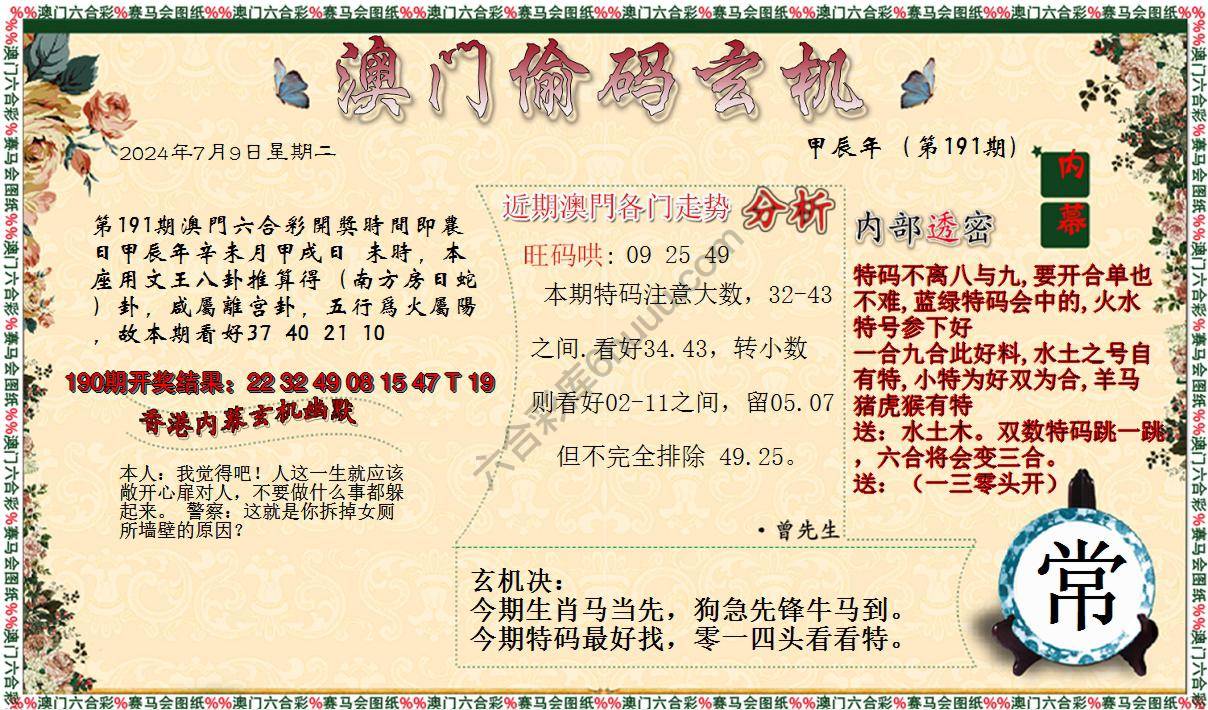 %%澳门六合彩%赛马会图纸%%澳门六合彩%赛马会图纸%%澳门六合彩%赛马会图纸%%澳门六合彩%赛马会图纸%%澳门六合彩%赛马会图纸%%澳门六合彩%赛马会图纸%%
澳门偷码玄机
2024年7月9日星期二
甲辰年（第191期）
内
幕
第191期澳門六合彩開獎時間即農
日甲辰年辛未月甲戌日 未時，本
座用文王八卦推算得（南方房日蛇
）卦，咸屬離宫卦，五行爲火屬陽
，故本期看好37 40 21 10
190期开奖结果：22 32 49 08 15 47 T 19
香港内幕玄机幽默
本人：我觉得吧！人这一生就应该
敞开心扉对人，不要做什么事都躲
起来。 警察：这就是你拆掉女厕
所墙壁的原因？
近期澳門各门走势 分析
旺码哄: 09 25 49
本期特码注意大数，32-43
之间.看好34.43，转小数
则看好02-11之间，留05.07
但不完全排除 49.25。
·曾先生
内部透密
特码不离八与九,要开合单也
不难,蓝绿特码会中的,火水
特号参下好
一合九合此好料,水土之号自
有特,小特为好双为合,羊马
猪虎猴有特
送：水土木。双数特码跳一跳
，六合将会变三合。
送：（一三零头开）
玄机决：
今期生肖马当先，狗急先锋牛马到。
今期特码最好找，零一四头看看特。
常
%%澳门六合彩%赛马会图纸%%澳门六合彩%赛马会图纸%%澳门六合彩%赛马会图纸%%澳门六合彩%赛马会图纸%%澳门六合彩%赛马会图纸%%澳门六合彩%赛马会图纸%%